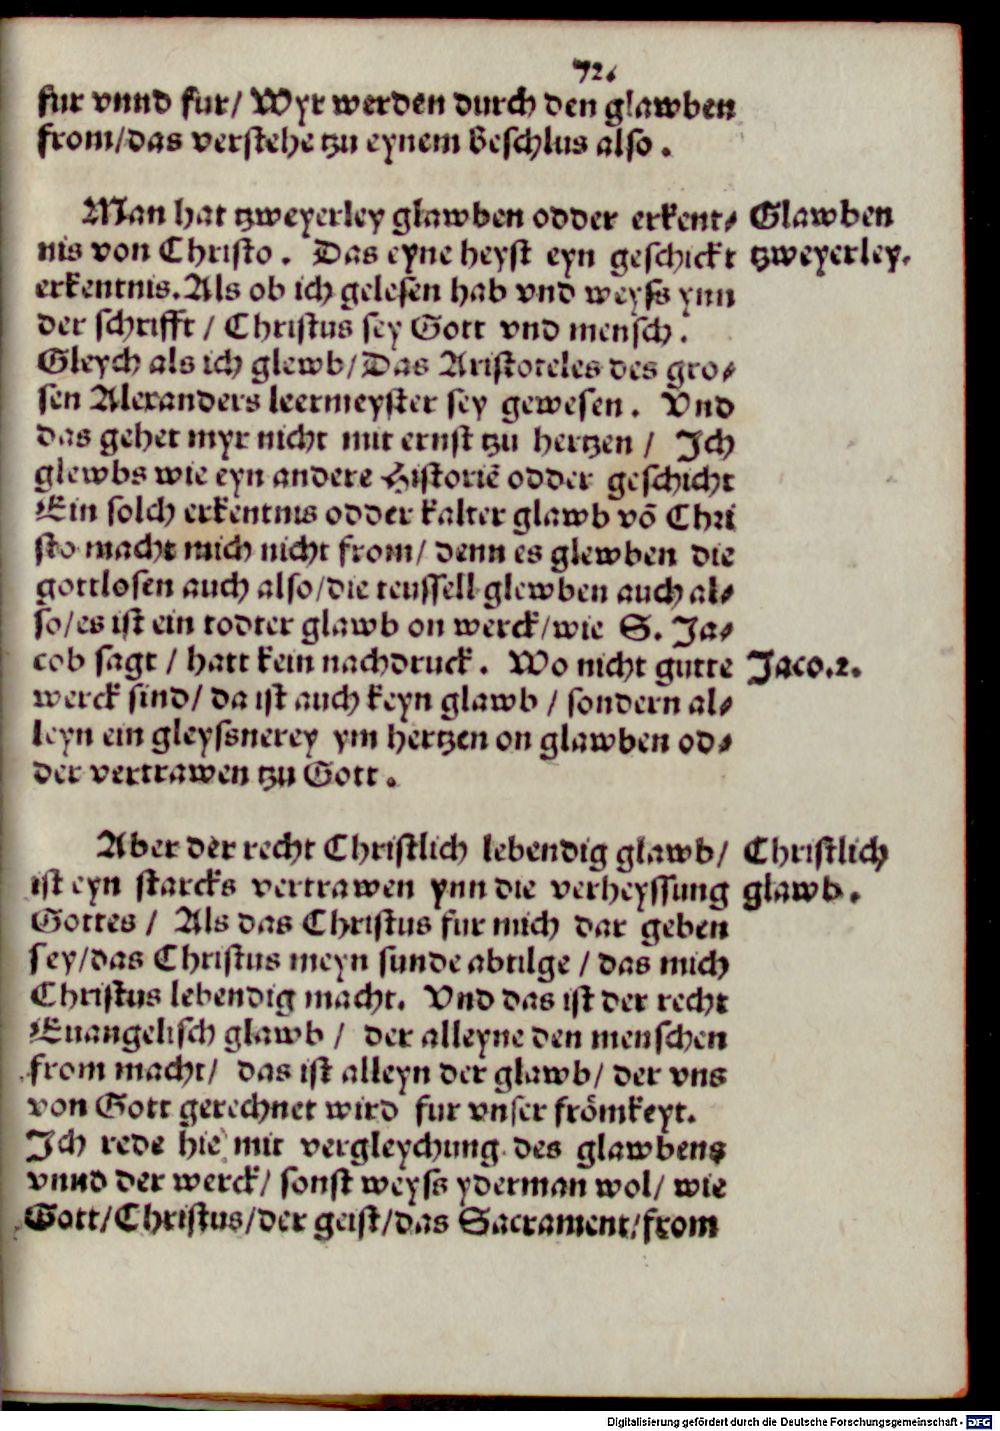 72.
fur vnnd fur/ Wyr werden durch den glawben
from/das verstehe tzu eynem beschlus also.
Man hat tzweyerley glawben odder erkent⸗ Glawben
nis von Christo. Das eyne heyst eyn geschickt tzweyerley.
erkentnis. Als ob ich gelesen hab vnd weyss ynn
der schrifft / Christus sey Gott vnd mensch.
Gleych als ich glewb/Das Aristoteles des gro⸗
sen Alexanders leermeyster sey gewesen. Vnd
das gehet myr nicht mit ernst tzu hertzen / Ich
glewbs wie eyn andere Historiē odder geschicht
Ein solch erkentnis odder kalter glawb vō Chri
sto macht mich nicht from/ denn es glewben die
gottlosen auch also/die teuffell glewben auch al⸗
so/es ist ein todter glawb on werck/wie S. Ja⸗
cob sagt / hatt kein nachdruck. Wo nicht gutte Jaco.2.
werck sind/ da ist auch keyn glawb / sondern al⸗
leyn ein gleyssnerey ym hertzen on glawben od⸗
der vertrawen tzu Gott.
Aber der recht Christlich lebendig glawb/ Christlich
ist eyn starcks vertrawen ynn die verheyssung glawb.
Gottes / Als das Christus fur mich dar geben
sey/das Christus meyn sunde abtilge / das mich
Christus lebendig macht. Vnd das ist der recht
Euangelisch glawb / der alleyne den menschen
from macht/ das ist alleyn der glawb/ der vns
von Gott gerechnet wird fur vnser frōmkeyt.
Ich rede hie mit vergleychung des glawbens
vnnd der werck/ sonst weyss yderman wol/ wie
Gott/Christus/der geist/das Sacrament/from
Digitalisierung gefördert durch die Deutsche Forschungsgemeinschaft - DFG